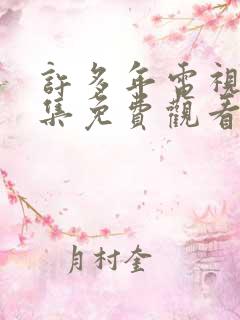 許多年電視
集免費觀看
月村奎